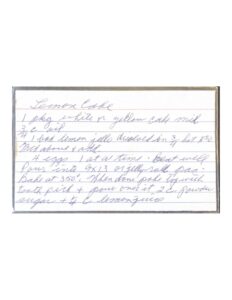 Lemon Cake
1 pkg white or yellow cake mix
3/4 C oil
1 box lemon jello dissolved in 3/4 hot
Mix above & add
4 eggs 1 at a time. Beat well
Pour into 9x13 or jelly roll pan.
Bake at 350°. When done poke top with
tooth pick & pour over it 2 C powder
sugar + 1/4 C lemon juice